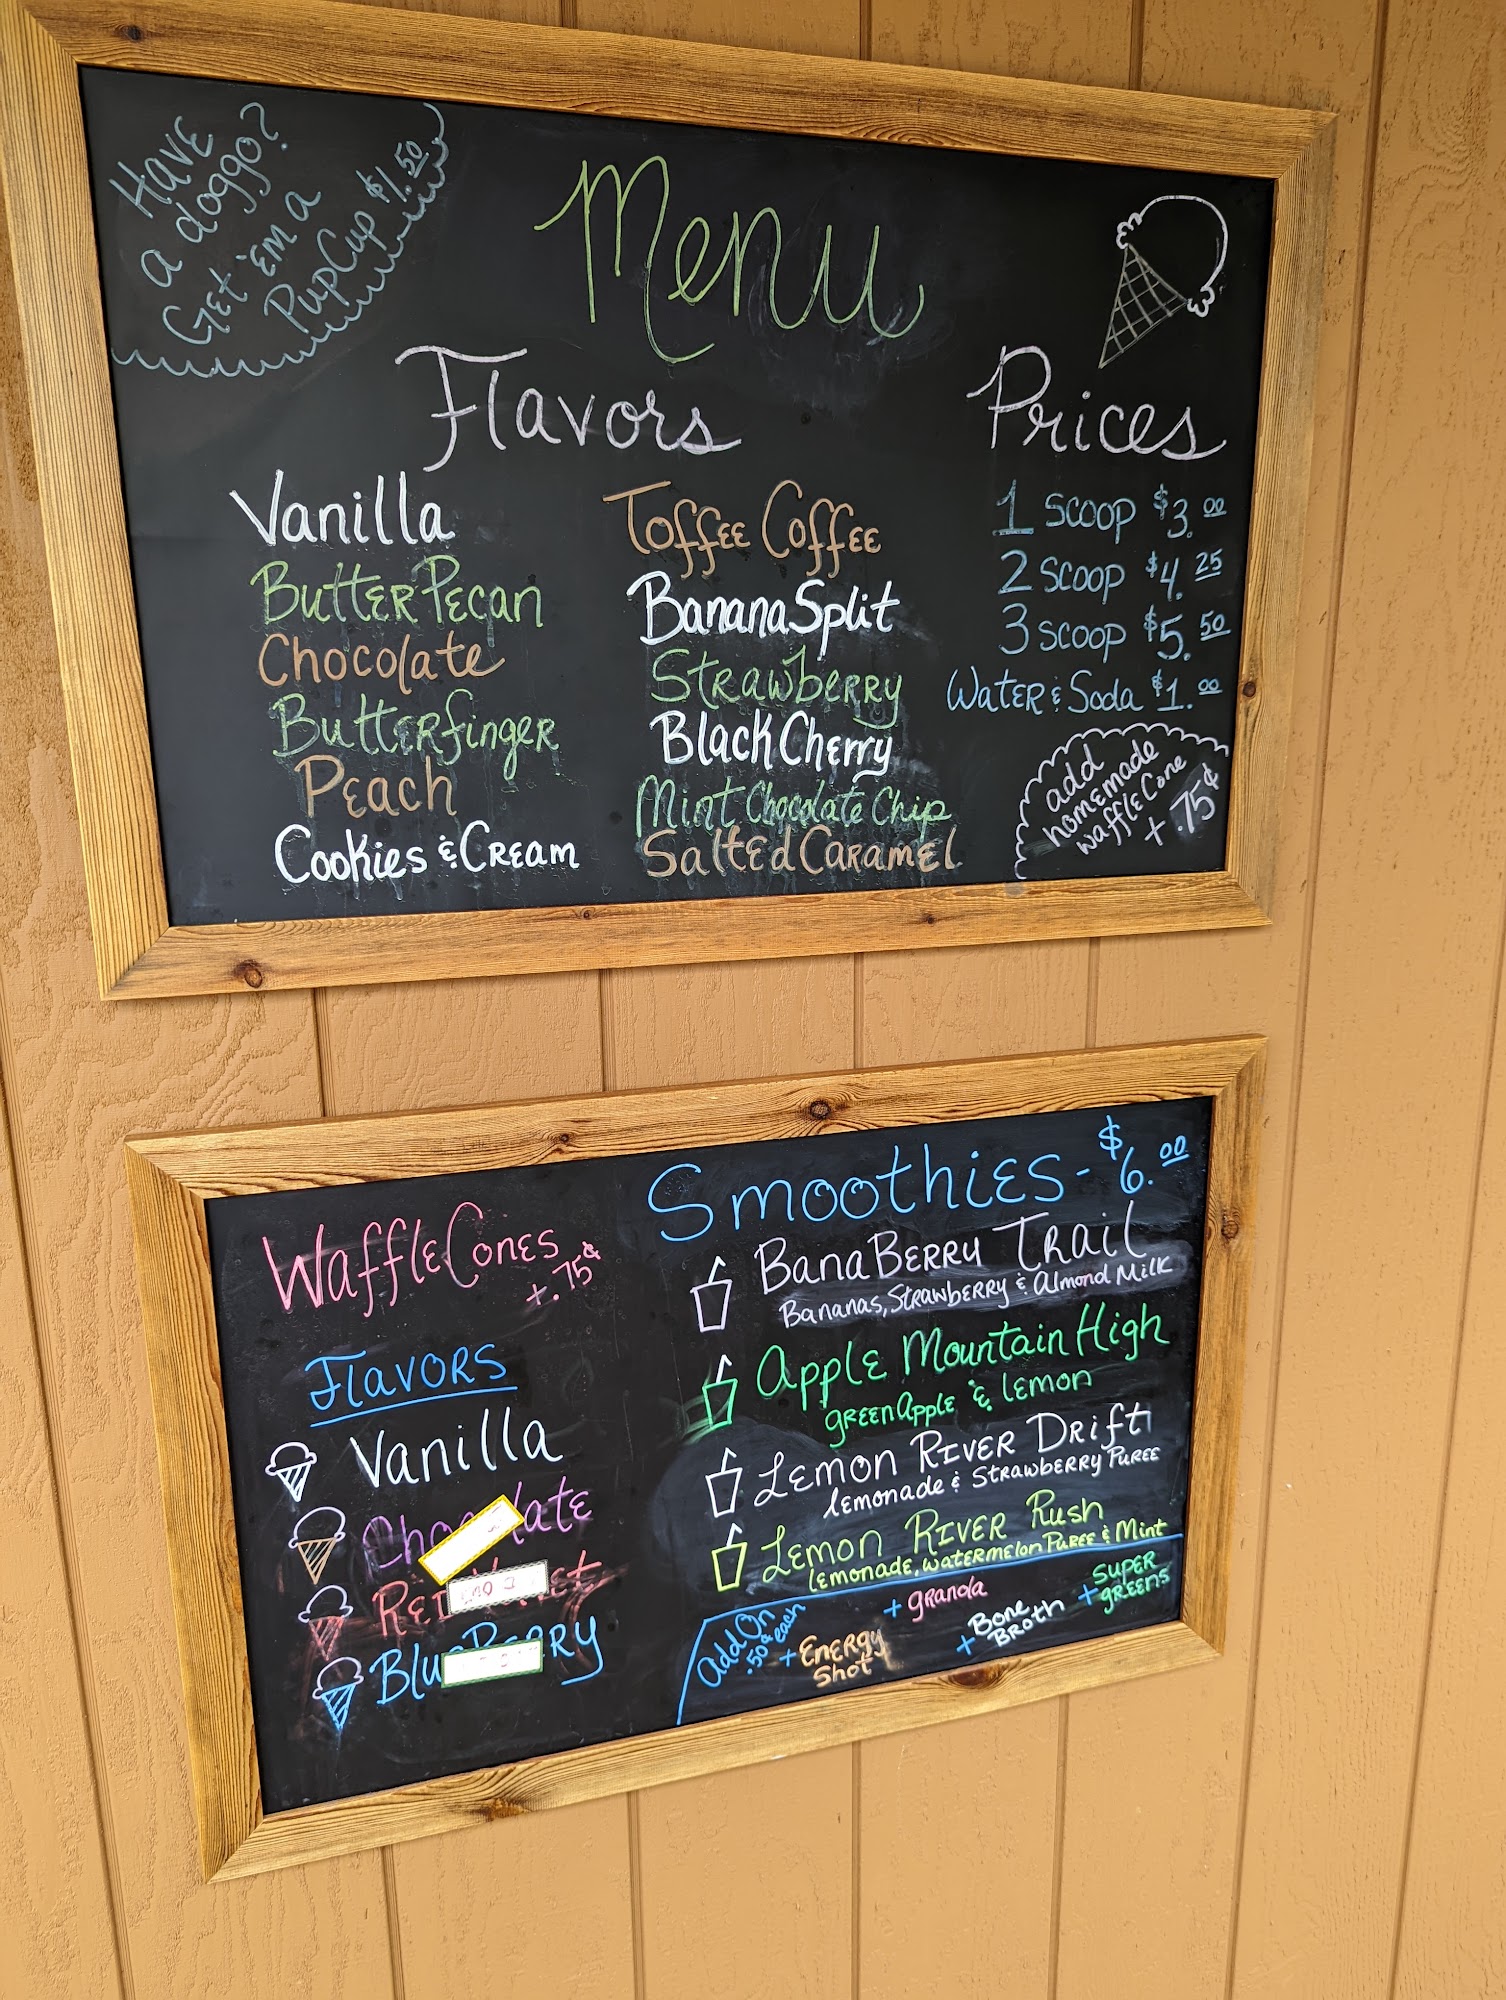 Have
a doggo?
Get 'em a
PupCup $1.50
Menu
Flavors
Vanilla
Butter Pecan
Chocolate
Butterfinger
Peach
Cookies & Cream
Toffee Coffee
Banana Split
Strawberry
Black Cherry
Mint Chocolate Chip
Salted Caramel
Prices
1 Scoop $3.00
2 Scoop $4.25
3 Scoop $5.50
Water & Soda $1.00
add
homemade
waffle Cone
+ .75¢
Waffle Cones
+.75¢
Flavors
Vanilla
Smoothies - $6.00
BanaBerry Trail
Bananas, Strawberry & Almond Milk
Apple Mountain High
green Apple & lemon
Lemon River Drift
lemonade & Strawberry Puree
Lemon River Rush
lemonade, watermelon Puree & Mint
Add On
.50¢ each
+ Energy
Shot
+ granola
+ Bone
Broth
+ Super
greens